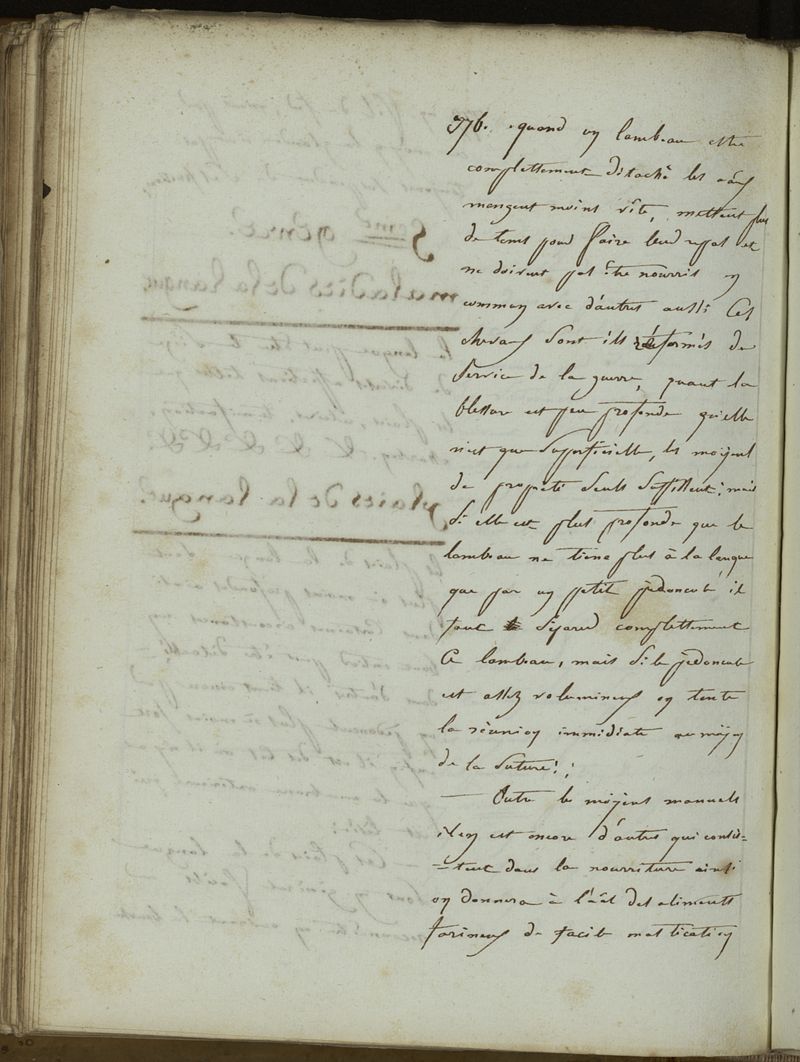 376. quand un lambeau etté
complettement détaché les a^aux
mangent moins vîte, mettent plus
de tems pour faire leur repas et
ne doivent pas être nourris en
commun avec d'autres aussi ces
chevaux sont ils réformés de
service de la guerre, quant la
blessure est peu profonde qu'elle
n'est que superficielle, les moyens
de propreté seuls suffisent; mais
si elle est plus profonde que le
lambeau ne tiene plus à la langue
que par un petit pédoncule il
faut séparer complettement
ce lambeau, mais si le pédoncule
est assez volumineux on tente
la réunion immédiate au moyen
de la suture:;
— Outre les moyens manuels
il en est encore d'autres qui consis=
=tent dans la nourriture ainsi
on donnera à l'a^al des aliments
farineux de facile mastication